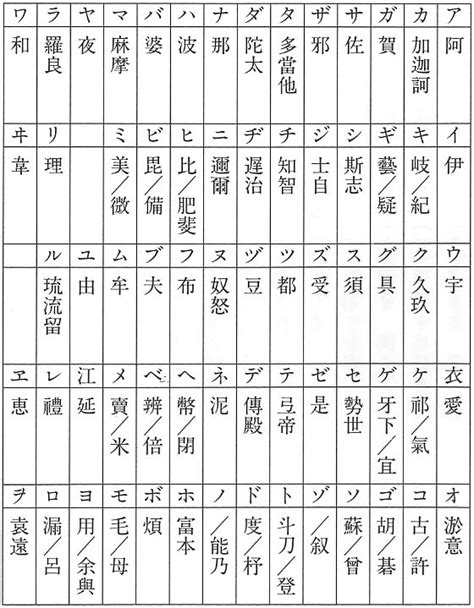 ア カ ガ サ ザ タ ダ ナ ハ バ マ ヤ ラ ワ
阿 加迦訶 賀 佐 邪 多當他 陀太 那 波 婆 麻摩 夜 羅良 和
イ キ ギ シ ジ チ ヂ ニ ヒ ビ ミ リ ヰ
伊 岐／紀 藝／疑 斯志 士自 知智 遲治 邇爾 比／肥斐 毘／備 美／微 理 韋
ウ ク グ ス ズ ツ ヅ ヌ フ ブ ム ユ ル
宇 久玖 具 須 受 都 豆 奴怒 布 夫 牟 由 琉流留
衣 ケ ゲ セ ゼ テ デ ネ ヘ ベ メ 江 レ ヱ
愛 祁／氣 牙下／宜 勢世 是 弖帝 傳殿 泥 幣／閉 辨／倍 賣／米 延 禮 恵
オ コ ゴ ソ ゾ ト ド ノ ホ ボ モ ヨ ロ ヲ
淤意 古／許 胡／碁 蘇／曾 ／叙 斗刀／登 度／杼 ／能乃 富本 煩 毛／母 用／余與 漏／呂 袁遠